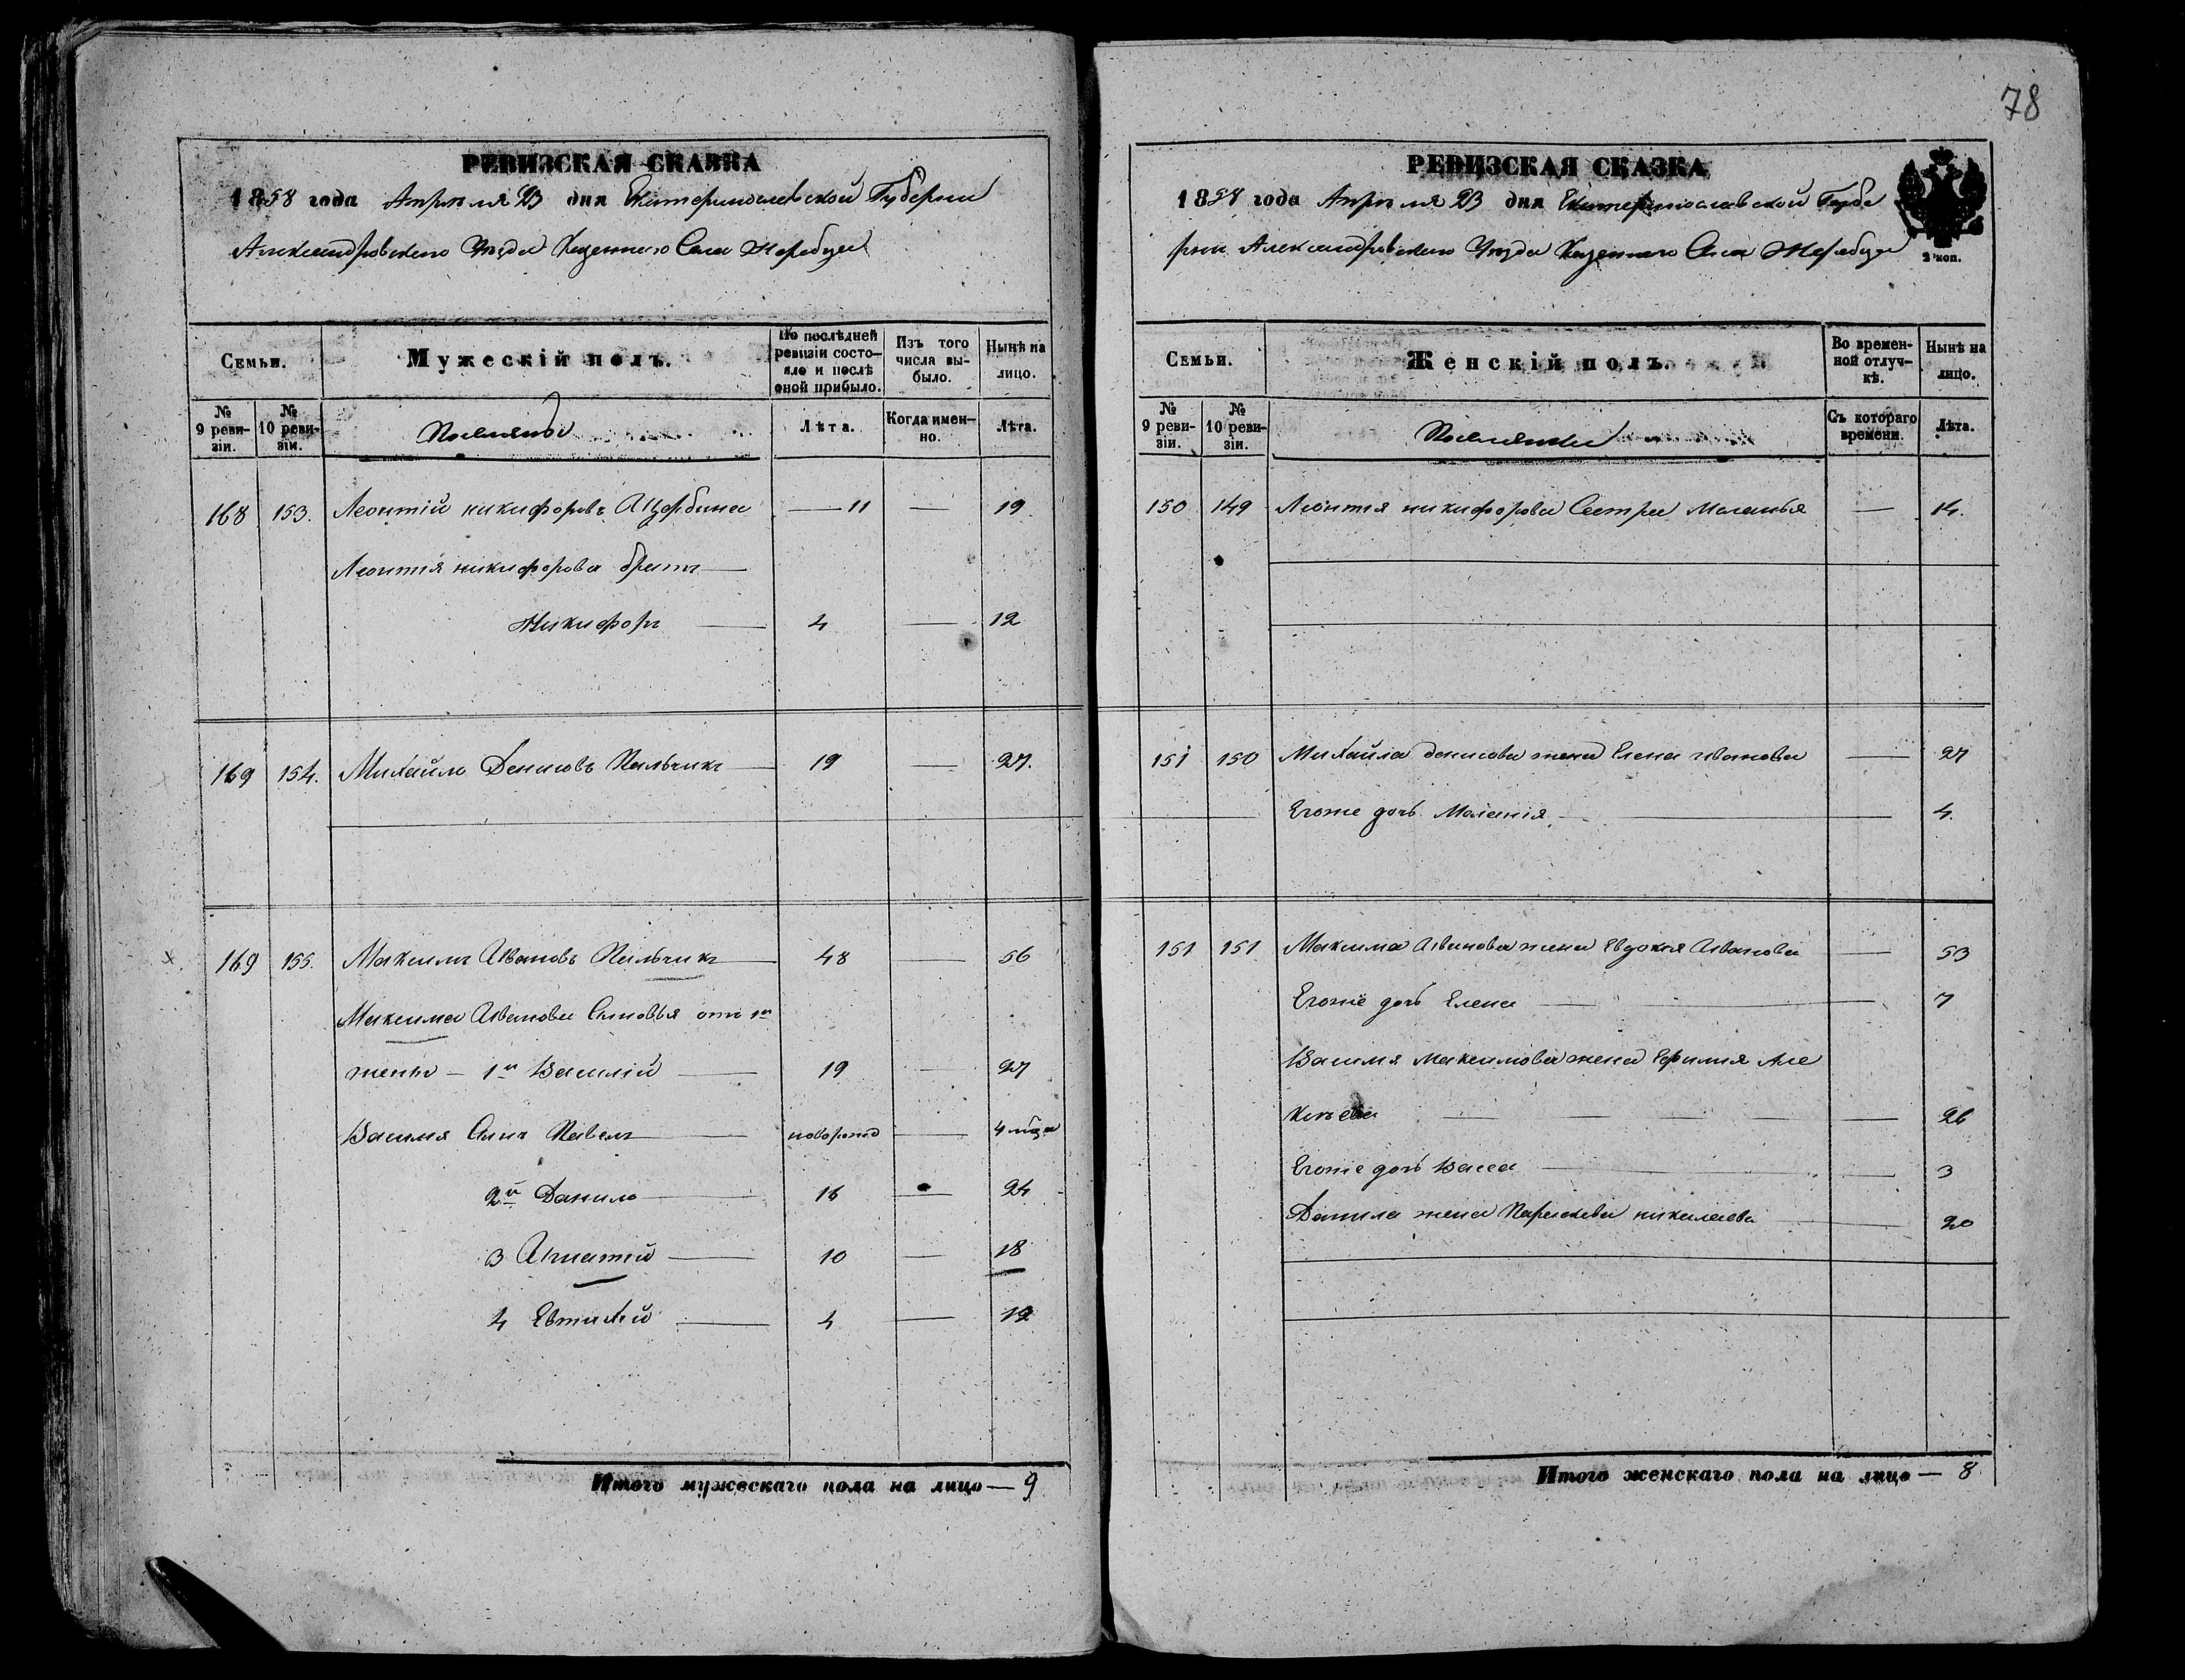 78
РЕВИЗСКАЯ СКАЗКА
1858 года Апреля 23 дня Екатеринославской Губернии
Александровского Уезда Казенного Села Жеребца
Семьи.
Мужескій полъ.
По послѣдней ревизіи состояло и послѣ оной прибыло.
Изъ того числа выбыло.
Нынѣ на лицо.
№ 9 ревизіи.
№ 10 ревизіи.
Поселяне
Лѣта.
Когда именно.
Лѣта.
168 153. Леонтій никифоровъ Щербина — 11 — 19
Леонтія никифорова братъ —
Никифоръ — 4 — 12
169 154. Михайло Денисовъ Пальчикъ — 19 — 27.
169 155. Максимъ Ивановъ Пальчикъ — 48 — 56
Максима Иванова Сыновья отъ 1й
жены — 1й Василій — 19 — 27
Василія Сынъ Павелъ — новорожд — 4 мѣца
2й Данило — 16 — 24
3 Игнатій — 10 — 18
4 Евтихій — 4 — 12
Итого мужескаго пола на лицо — 9
РЕВИЗСКАЯ СКАЗКА
1858 года Апреля 23 дня Екатеринославской Губе
рнии Александровского Уезда Казенного Села Жеребца
2 коп.
Семьи.
Женскій полъ.
Во временной отлучкѣ.
Нынѣ на лицо.
№ 9 ревизіи.
№ 10 ревизіи.
Поселянки
Съ котораго времени.
Лѣта.
150 149 Леонтія никифорова Сестра Маланья — 14.
151 150 Михайла денисова жена Елена иванова — 27
Егоже дочь Маланія — 4.
151 151 Максима Иванова жена Евдокія Иванова — 53
Егоже дочь Елена — 7
Василія Максимова жена Ефимія Але
ксѣева — 26
Егоже дочь Васса — 3
Данила жена Параскева николаева — 20
Итого женскаго пола на лицо — 8